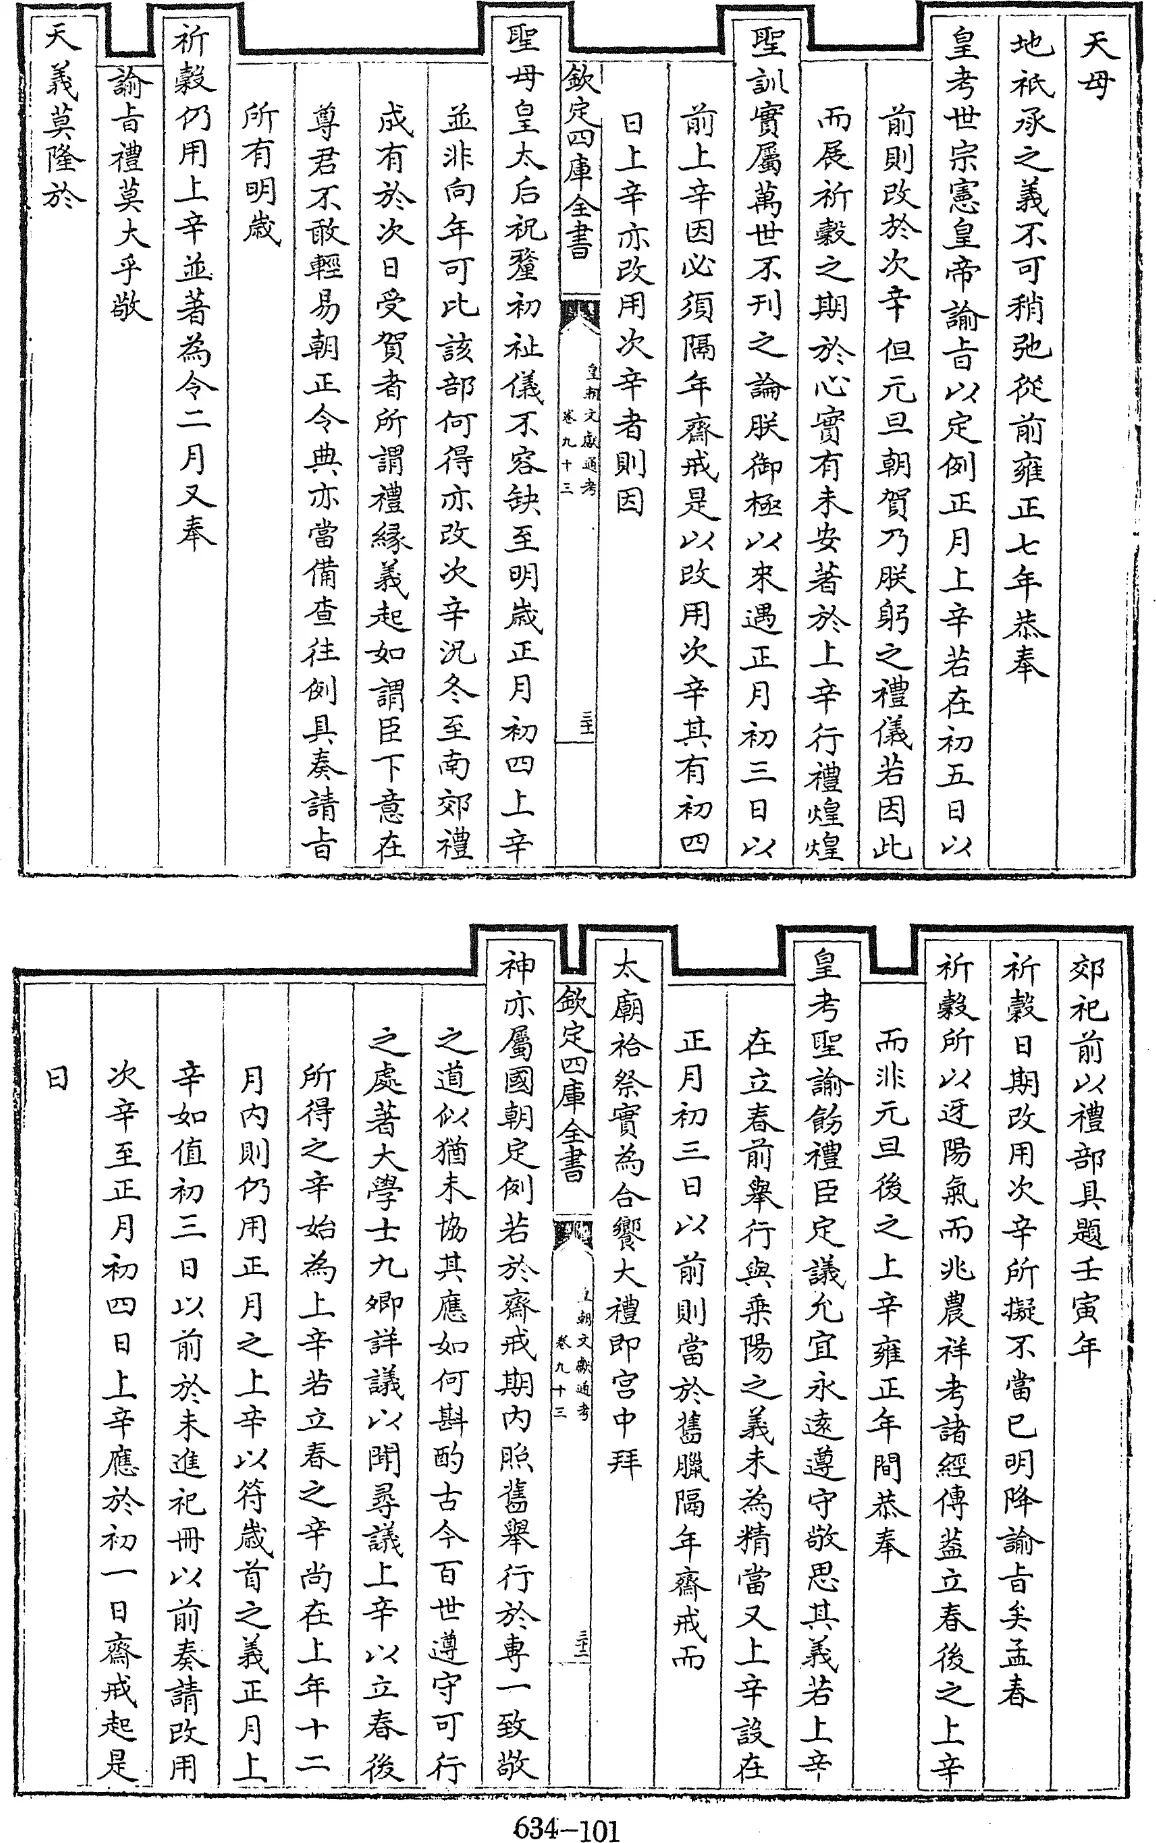 天母
地祇承之義不可稍弛從前雍正七年恭奉
皇考世宗憲皇帝諭旨以定例正月上辛若在初五日以
前則改於次辛但元旦朝賀乃朕躬之禮儀若因此
而展祈穀之期於心實有未安著於上辛行禮煌煌
聖訓實屬萬世不刊之論朕御極以來遇正月初三日以
前上辛因必須隔年齋戒是以改用次辛其有初四
日上辛亦改用次辛者則因
欽定四庫全書 皇朝文獻通考 卷九十三 三十一
聖母皇太后祝釐初祉儀不容缺至明歲正月初四上辛
並非向年可比該部何得亦改次辛況冬至南郊禮
成有於次日受賀者所謂禮緣義起如謂臣下意在
尊君不敢輕易朝正令典亦當備查往例具奏請旨
所有明歲
祈穀仍用上辛並著為令二月又奉
諭旨禮莫大乎敬
天義莫隆於
郊祀前以禮部具題壬寅年
祈穀日期改用次辛所擬不當已明降諭旨矣孟春
祈穀所以迓陽氣而兆農祥考諸經傳葢立春後之上辛
而非元旦後之上辛雍正年間恭奉
皇考聖諭飭禮臣定議允宜永遠遵守敬思其義若上辛
在立春前舉行與乘陽之義未為精當又上辛設在
正月初三日以前則當於舊臘隔年齋戒而
太廟祫祭實為合饗大禮即宮中拜
欽定四庫全書 皇朝文獻通考 卷九十三 三十二
神亦屬國朝定例若於齋戒期內照舊舉行於専一致敬
之道似猶未協其應如何斟酌古今百世遵守可行
之處著大學士九卿詳議以聞尋議上辛以立春後
所得之辛始為上辛若立春之辛尚在上年十二
月內則仍用正月之上辛以符歲首之義正月上
辛如值初三日以前於未進祀冊以前奏請改用
次辛至正月初四日上辛應於初一日齋戒起是
日
634-101